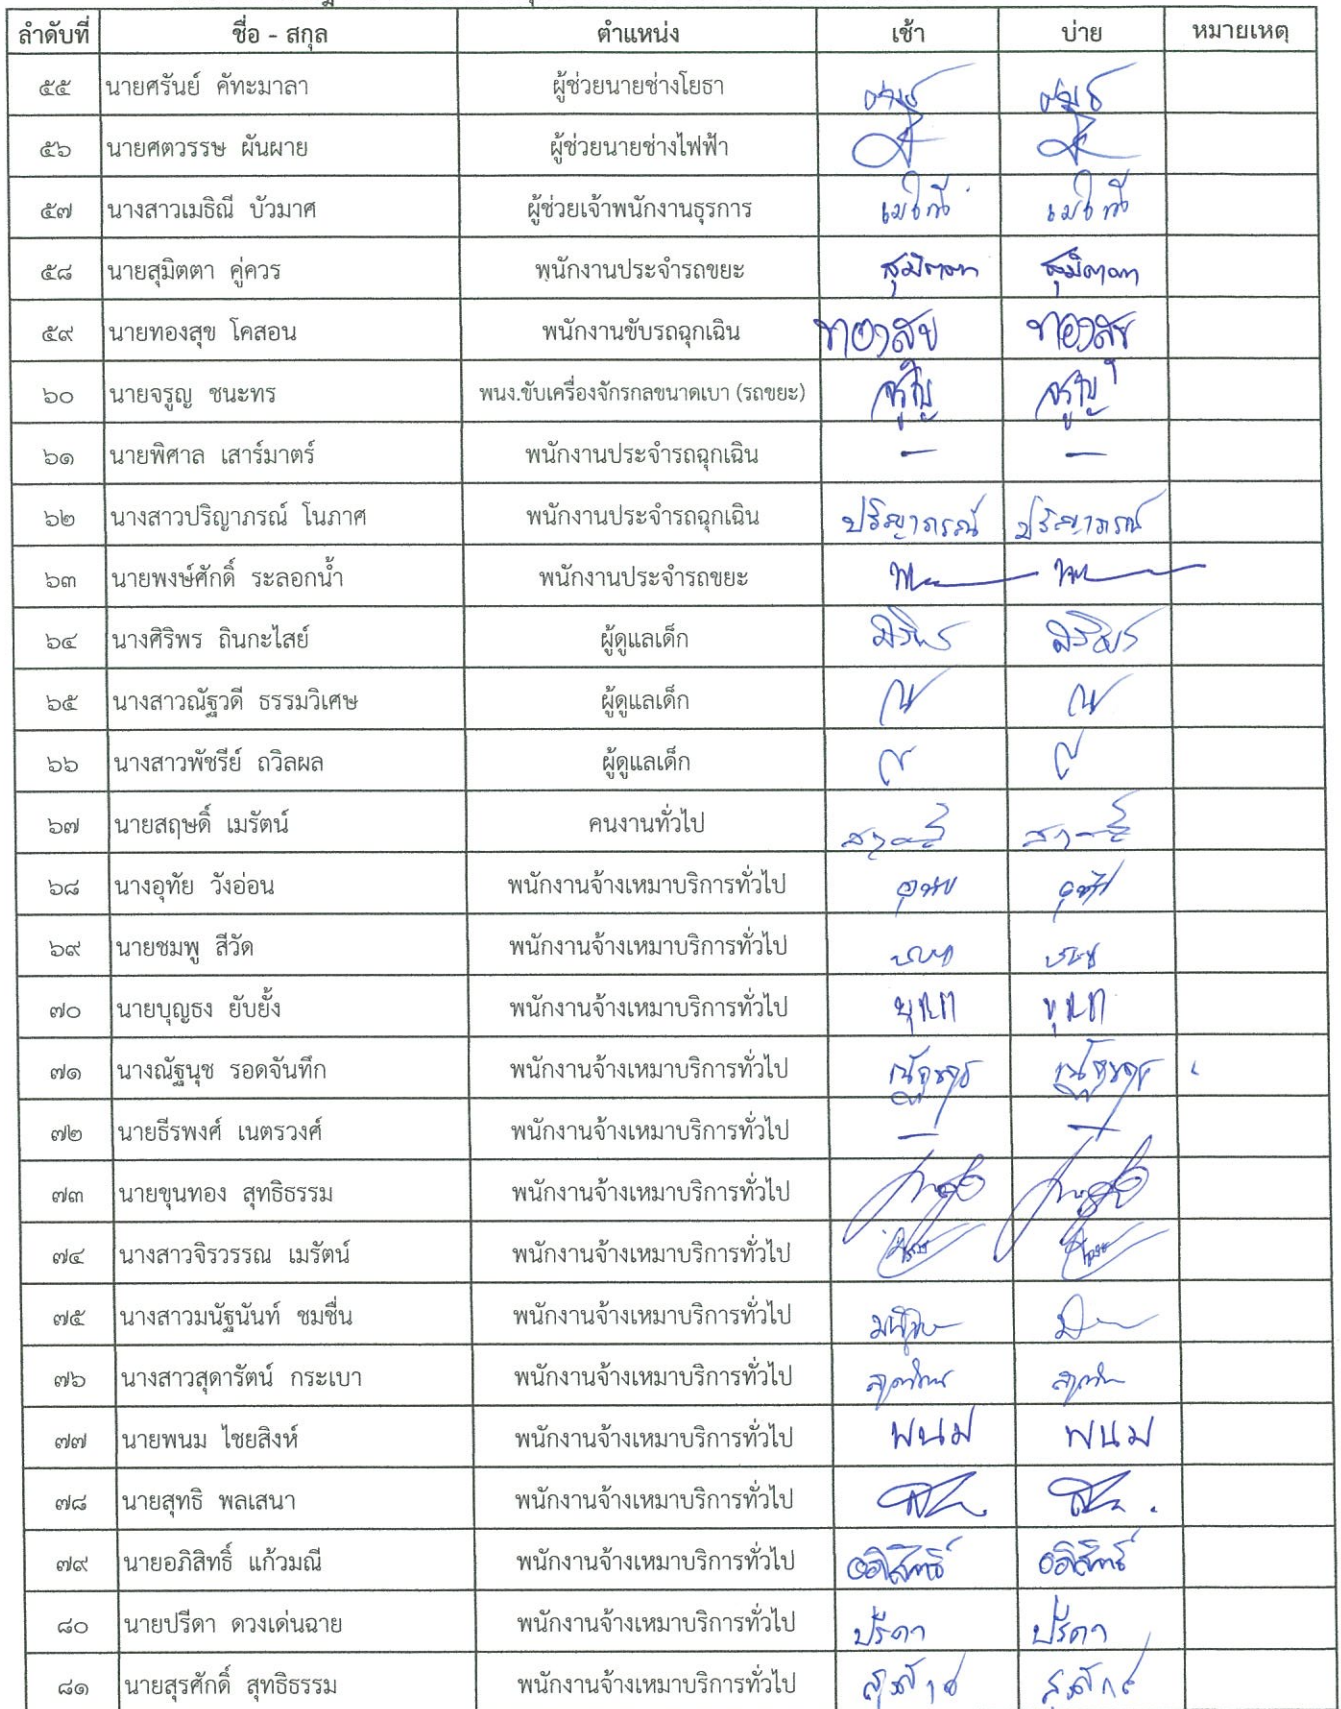 ลำดับที่ ชื่อ - สกุล ตำแหน่ง เช้า บ่าย หมายเหตุ
๕๕ นายศรันย์ คัทะมาลา ผู้ช่วยนายช่างโยธา
๕๖ นายศตวรรษ ผันผาย ผู้ช่วยนายช่างไฟฟ้า
๕๗ นางสาวเมธิณี บัวมาศ ผู้ช่วยเจ้าพนักงานธุรการ
๕๘ นายสุมิตตา คู่ควร พนักงานประจำรถขยะ สุมิตตา สุมิตตา
๕๙ นายทองสุข โคสอน พนักงานขับรถฉุกเฉิน
๖๐ นายจรูญ ชนะทร พนง.ขับเครื่องจักรกลขนาดเบา (รถขยะ)
๖๑ นายพิศาล เสาร์มาตร์ พนักงานประจำรถฉุกเฉิน - -
๖๒ นางสาวปริญาภรณ์ โนภาศ พนักงานประจำรถฉุกเฉิน ปริญาภรณ์ ปริญาภรณ์
๖๓ นายพงษ์ศักดิ์ ระลอกน้ำ พนักงานประจำรถขยะ
๖๔ นางศิริพร ถินกะไสย์ ผู้ดูแลเด็ก ศิริพร ศิริพร
๖๕ นางสาวณัฐวดี ธรรมวิเศษ ผู้ดูแลเด็ก
๖๖ นางสาวพัชรีย์ ถวิลผล ผู้ดูแลเด็ก
๖๗ นายสฤษดิ์ เมรัตน์ คนงานทั่วไป
๖๘ นางอุทัย วังอ่อน พนักงานจ้างเหมาบริการทั่วไป
๖๙ นายชมพู สีวัด พนักงานจ้างเหมาบริการทั่วไป
๗๐ นายบุญธง ยับยั้ง พนักงานจ้างเหมาบริการทั่วไป
๗๑ นางณัฐนุช รอดจันทึก พนักงานจ้างเหมาบริการทั่วไป
๗๒ นายธีรพงศ์ เนตรวงศ์ พนักงานจ้างเหมาบริการทั่วไป - -
๗๓ นายขุนทอง สุทธิธรรม พนักงานจ้างเหมาบริการทั่วไป
๗๔ นางสาวจิรวรรณ เมรัตน์ พนักงานจ้างเหมาบริการทั่วไป
๗๕ นางสาวมนัฐนันท์ ชมชื่น พนักงานจ้างเหมาบริการทั่วไป
๗๖ นางสาวสุดารัตน์ กระเบา พนักงานจ้างเหมาบริการทั่วไป
๗๗ นายพนม ไชยสิงห์ พนักงานจ้างเหมาบริการทั่วไป พนม พนม
๗๘ นายสุทธิ พลเสนา พนักงานจ้างเหมาบริการทั่วไป
๗๙ นายอภิสิทธิ์ แก้วมณี พนักงานจ้างเหมาบริการทั่วไป อภิสิทธิ์ อภิสิทธิ์
๘๐ นายปรีดา ดวงเด่นฉาย พนักงานจ้างเหมาบริการทั่วไป ปรีดา ปรีดา
๘๑ นายสุรศักดิ์ สุทธิธรรม พนักงานจ้างเหมาบริการทั่วไป